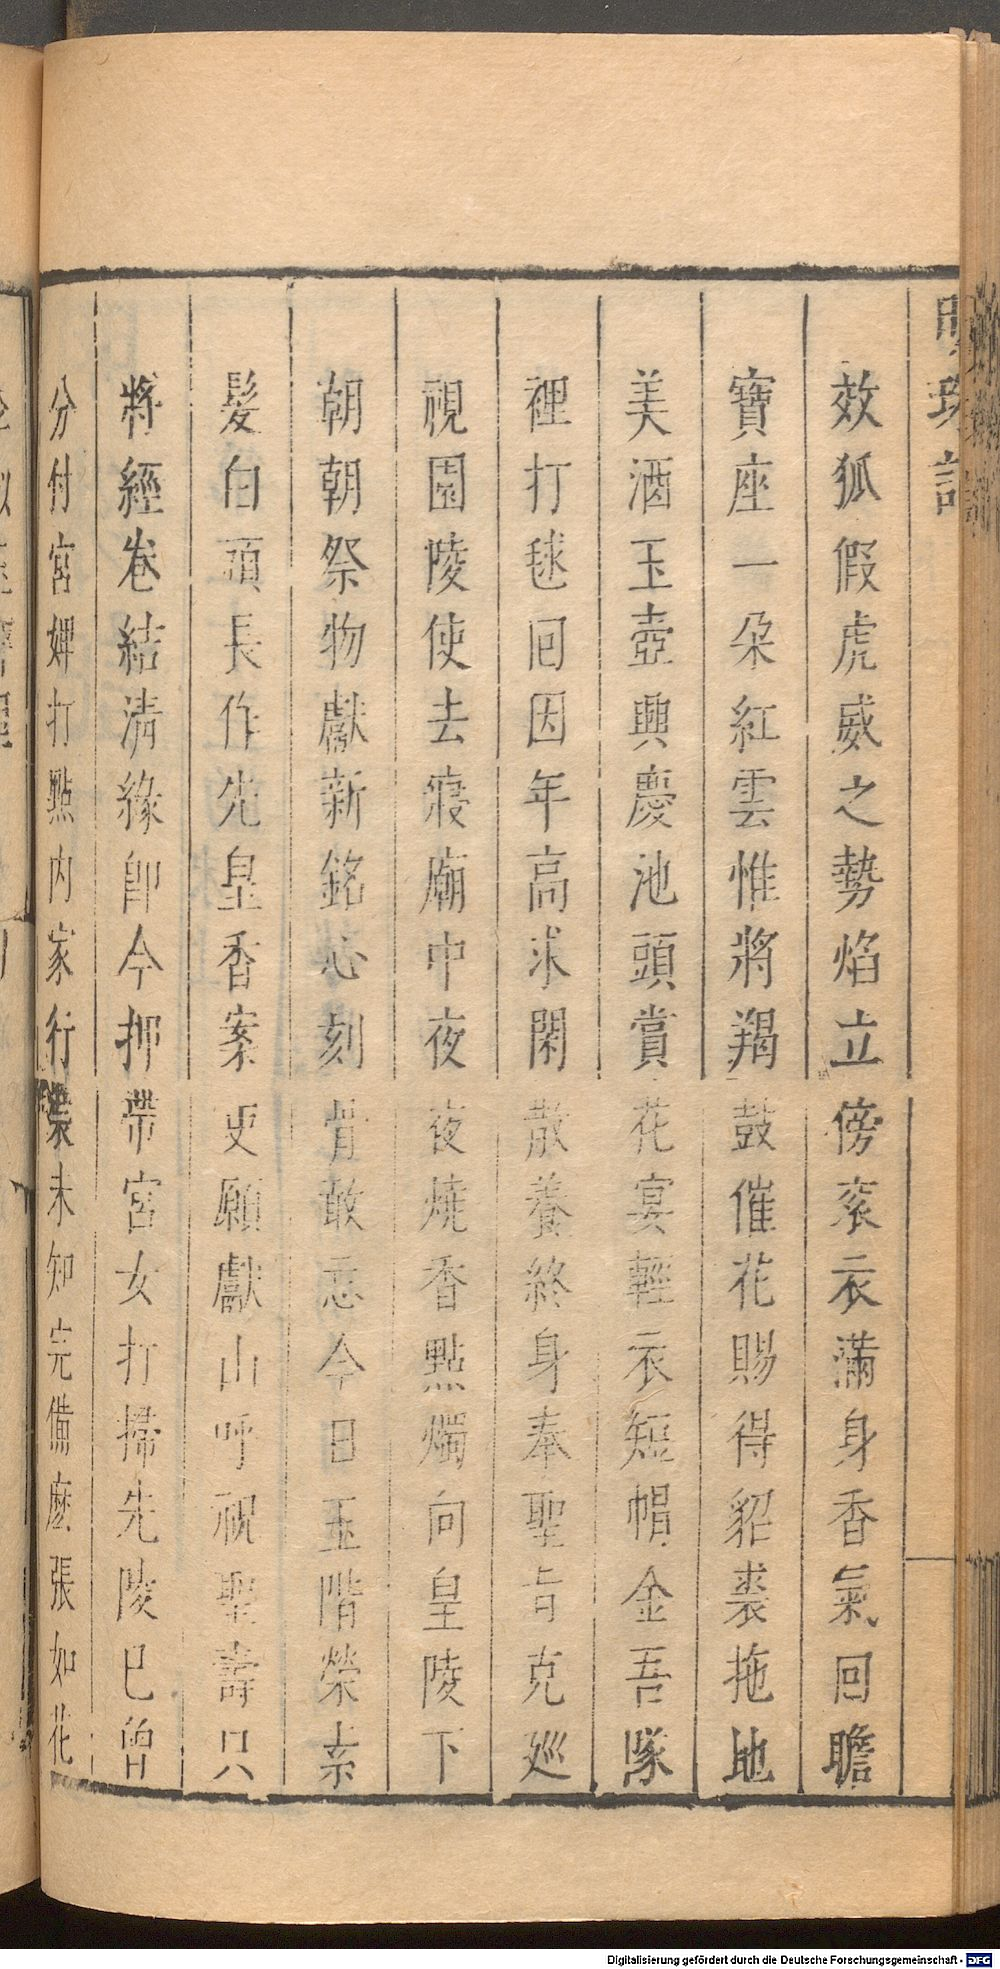 明珠記
效狐假虎威之勢焰立傍衮衣滿身香氣回瞻
寶座一朵紅雲惟將羯鼓催花賜得貂裘拖地
美酒玉壺興慶池頭賞花宴輕衣短帽金吾隊
裡打毬回因年高求閑散養終身奉聖旨克廵
視園陵使去寢廟中夜夜燒香點燭向皇陵下
朝朝祭物獻新銘心刻骨敢忘今日玉階榮素
髮白頭長作先皇香案吏願獻山呼祝聖壽只
將經卷結淸緣卽今押帶宮女打掃先陵已曾
分付宮嬋打點內家行裝未知完備麽張如花
Digitalisierung gefördert durch die Deutsche Forschungsgemeinschaft - DFG